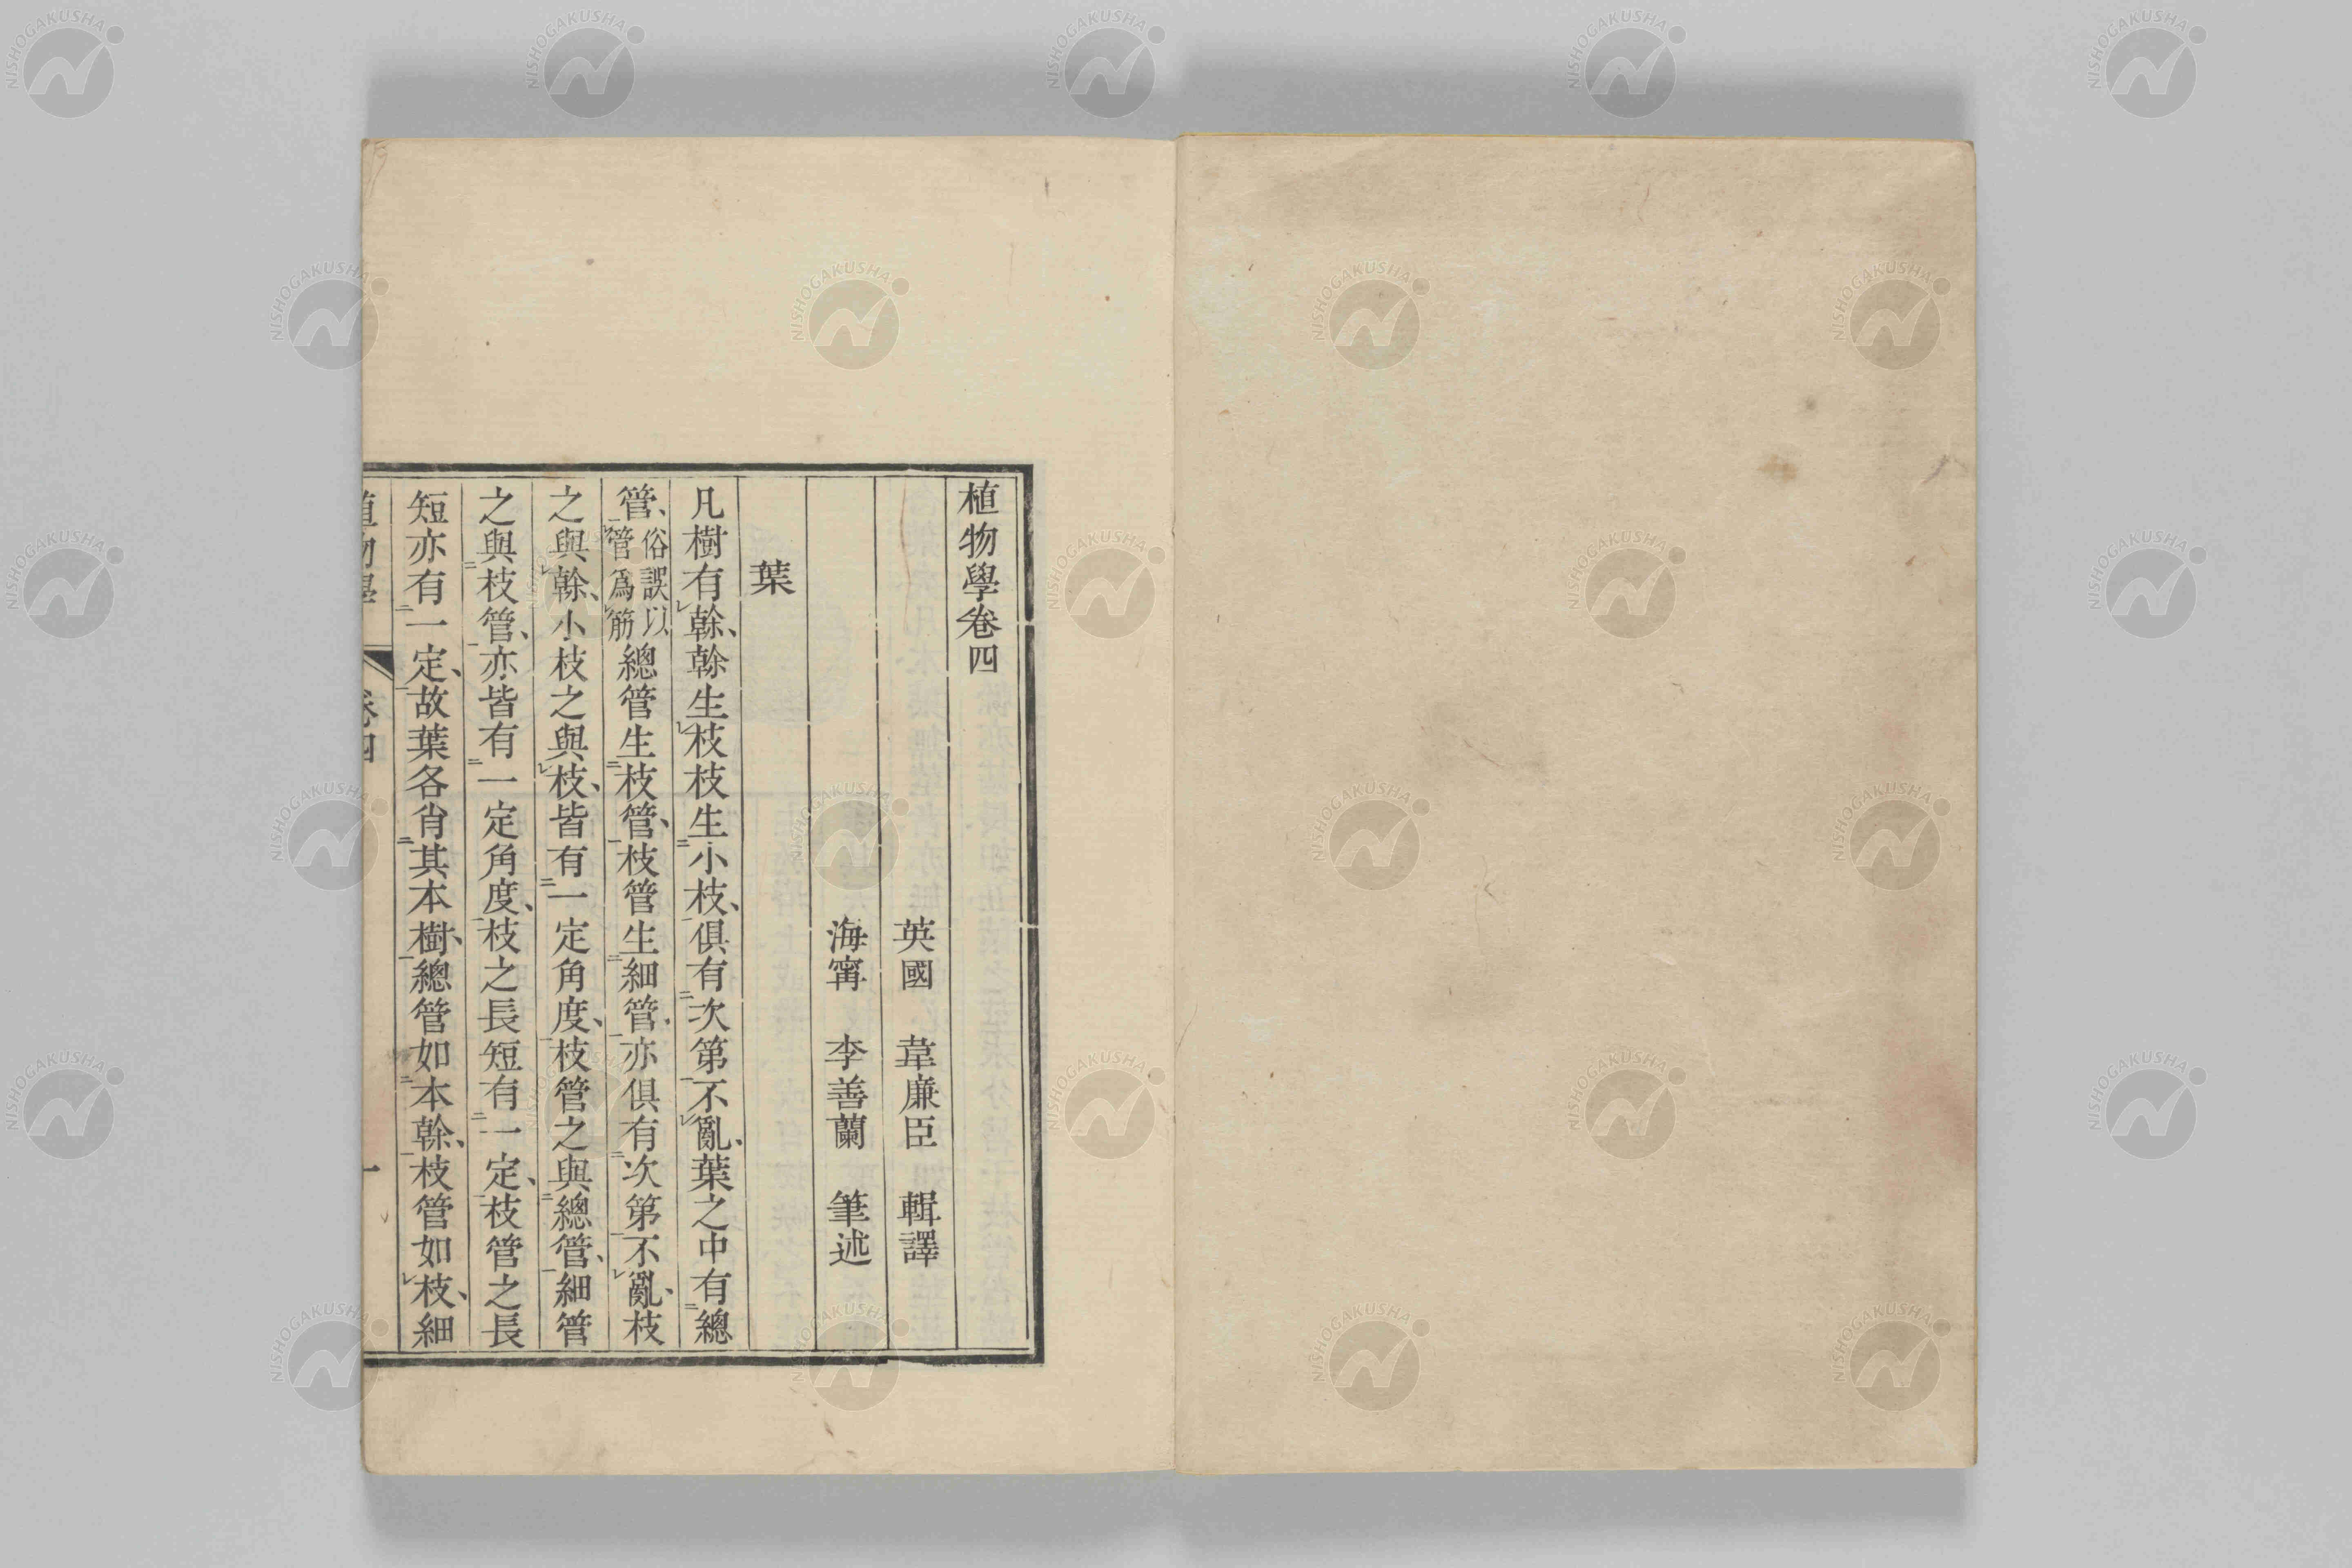 植物學卷四
英國 韋廉臣 輯譯
海寧 李善蘭 筆述
葉
凡樹有榦、榦生枝枝生小枝、俱有次第不亂、葉之中有總
管、俗誤以管爲筋總管生枝管、枝管生細管、亦俱有次第不亂、枝
之與榦、小枝之與枝、皆有一定角度、枝管之與總管、細管
之與枝管、亦皆有一定角度、枝之長短有一定、枝管之長
短亦有一定、故葉各肖其本樹、總管如本榦、枝管如枝、細
植物學 卷四 一
NISHOGAKUSHA